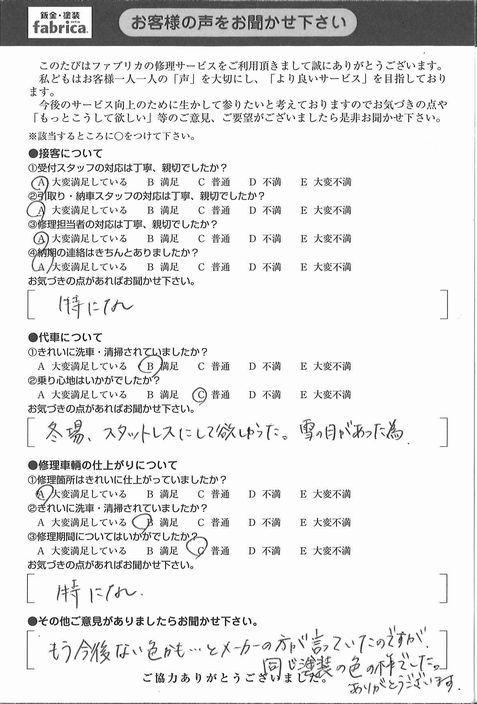 鈑金・塗装
fabrica.
お客様の声をお聞かせ下さい
このたびはファブリカの修理サービスをご利用頂きまして誠にありがとうございます。
私どもはお客様一人一人の「声」を大切にし、「より良いサービス」を目指しており
ます。
今後のサービス向上のために生かして参りたいと考えておりますのでお気づきの点や
「もっとこうして欲しい」等のご意見、ご要望がございましたら是非お聞かせ下さい。
※該当するところに○をつけて下さい。
●接客について
①受付スタッフの対応は丁寧、親切でしたか？
A 大変満足している B 満足 C 普通 D 不満 E 大変不満
②引取り・納車スタッフの対応は丁寧、親切でしたか？
A 大変満足している B 満足 C 普通 D 不満 E 大変不満
③修理担当者の対応は丁寧、親切でしたか？
A 大変満足している B 満足 C 普通 D 不満 E 大変不満
④納期の連絡はきちんとありましたか？
A 大変満足している B 満足 C 普通 D 不満 E 大変不満
お気づきの点があればお聞かせ下さい。
特になし
●代車について
①きれいに洗車・清掃されていましたか？
A 大変満足している B 満足 C 普通 D 不満 E 大変不満
②乗り心地はいかがでしたか？
A 大変満足している B 満足 C 普通 D 不満 E 大変不満
お気づきの点があればお聞かせ下さい。
冬場、スタットレスにして欲しかった。雪の日があった為.
●修理車輌の仕上がりについて
①修理箇所はきれいに仕上がっていましたか？
A 大変満足している B 満足 C 普通 D 不満 E 大変不満
②きれいに洗車・清掃されていましたか？
A 大変満足している B 満足 C 普通 D 不満 E 大変不満
③修理期間についてはいかがでしたか？
A 大変満足している B 満足 C 普通 D 不満 E 大変不満
お気づきの点があればお聞かせ下さい。
特になし.
●その他ご意見がありましたらお聞かせ下さい。
もう今後ない色かも…とメーカーの方が言っていたのですが.
同じ塗装の色の様でした。
ありがとうございます.
ご協力ありがとうございました。